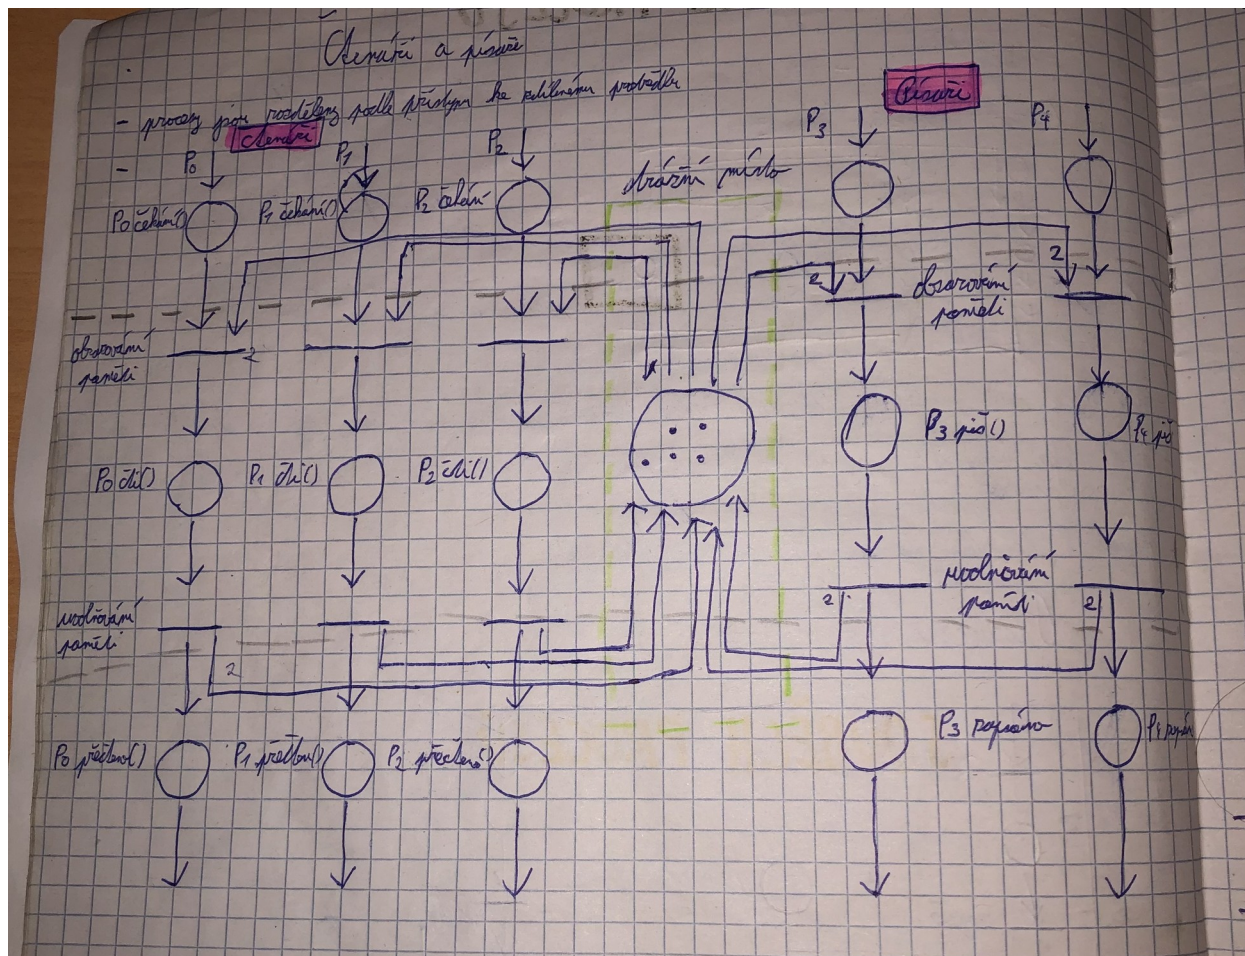 Čtenáři a písaři
- procesy jsou rozděleny podle přístupu ke sdílenému prostředku
Čtenáři
Písaři
-
P0
P1
P2
P3
P4
P0 čekání()
P1 čekání()
P2 čekání
strážní místo
2
2
obsazování
paměti
obsazování
paměti
2
P0 čti()
P1 čti()
P2 čti()
P3 piš()
P4 piš
uvolňování
paměti
uvolňování
paměti
2
2
2
P0 přečteno()
P1 přečteno()
P2 přečteno()
P3 napsáno
P4